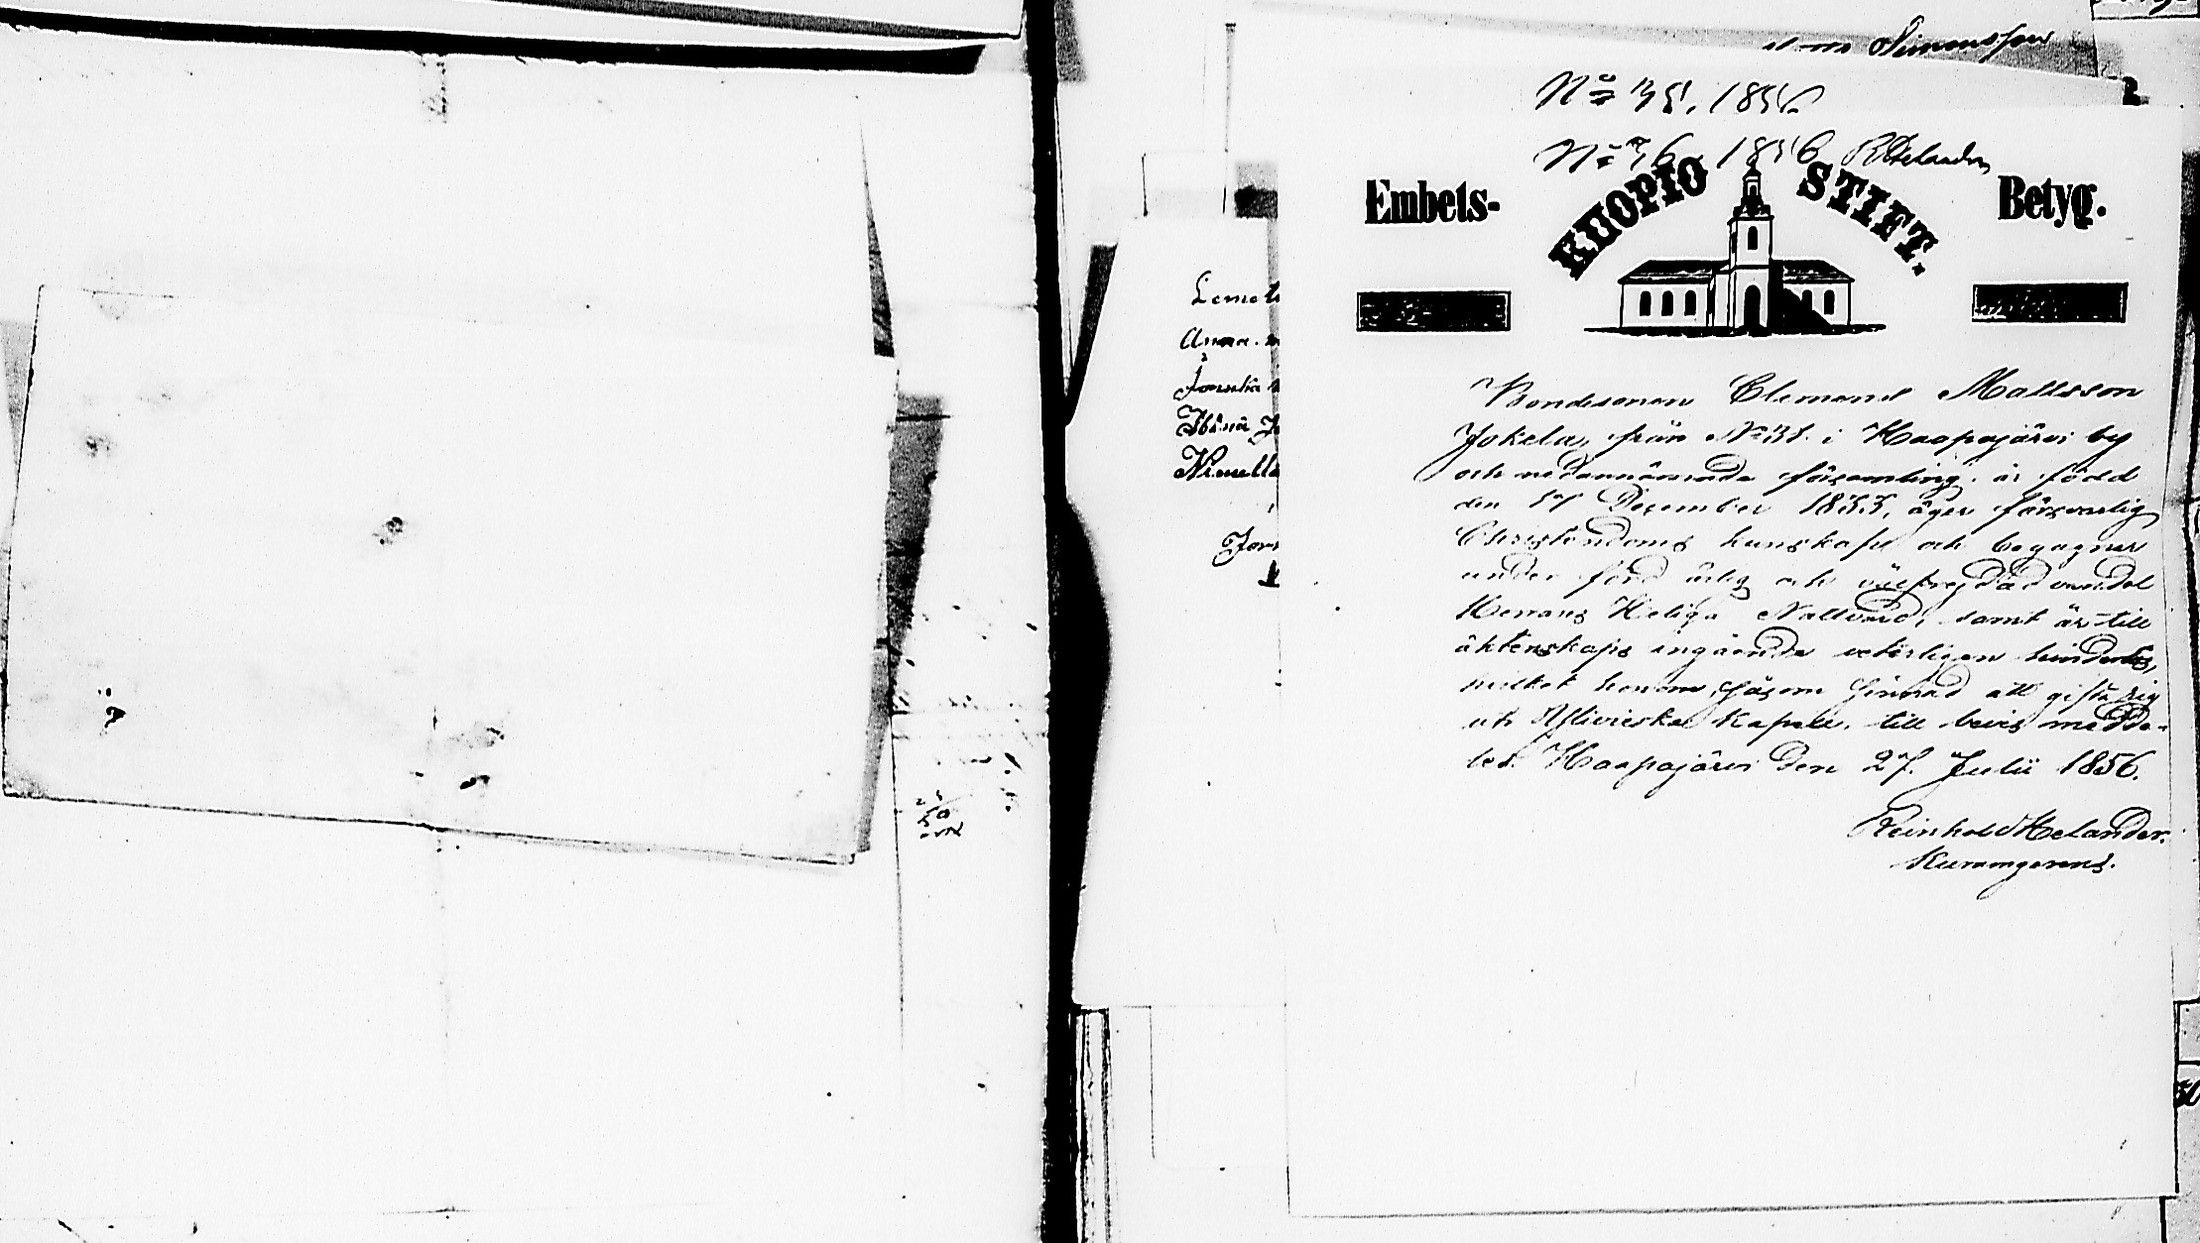 Simonsson
No 35, 1856
No 36 1856 RHelander
Embets- KUOPIO STIFT. Betyg.
Bondesonen Clemens Mattsson
Jokela, från No 31. i Haapajärvi by
och nedannämnde församling, är född
den 17 December 1833, äger försvarlig
Christendoms kunskap och begagnar
under förd ärlig och välfrejdad vandel
Herrans Heliga Nattvard, samt är till
äktenskaps ingående veterligen hinderlös,
hvilket honom, såsom sinnad att gifta sig
uti Ylivieska Kapell, till bevis medde-
les. Haapajärvi den 27. Julii 1856.
Reinhold Helander.
Lemet
Anna
Jor